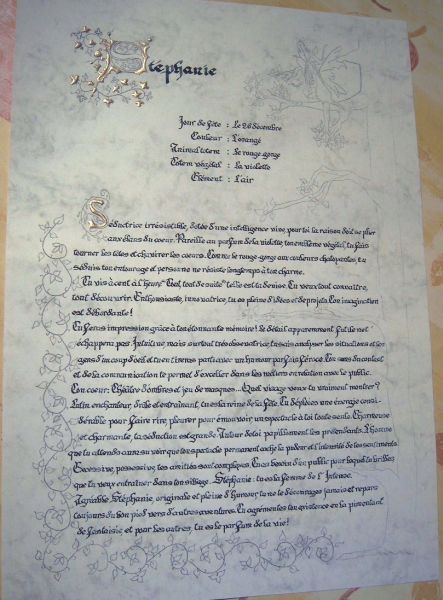 Stéphanie
Jour de fête : Le 26 décembre
Couleur : L'orangé
Animal totem : Le rouge-gorge
Totem végétal : La violette
Elément : L'air
Séductrice irrésistible, dotée d'une intelligence vive, pour toi la raison doit se plier
aux élans du coeur. Pareille au parfum de la violette, ton emblème végétal, tu fais
tourner les têtes et chavirer les coeurs. Comme le rouge-gorge aux couleurs chatoyantes, tu
séduis ton entourage et personne ne résiste longtemps à ton charme.
Tu vis à cent à l'heure. telle est ta devise. Tu veux tout connaître,
tout découvrir. Enthousiaste, innovatrice, tu as pleine d'idées et de projets. Ton imagination
est débordante !
Tu feras impression grâce à ton étonnante mémoire ! Le détail apparemment futile ne t'
échappera pas. Intuitive, mais surtout très observatrice, tu sais analyser les situations et les
gens d'un coup d'oeil et tu en tireras parti avec un humour parfois féroce. Ton sens du contact
et de la communication te permet d'exceller dans les métiers en relation avec le public.
Ton coeur : Théâtre d'ombres et jeu de masques... Quel visage veux-tu vraiment montrer ?
Lutin enchanteur, drôle et entraînant, tu es la reine de la fête. Tu déploies une énergie consi-
dérable pour faire rire, pleurer, pour émouvoir, un spectacle à toi toute seule. Charmeuse
et charmante, ta séduction est grande. Autour de toi papillonnent les prétendants. L'homme
que tu attends aura su voir que ton spectacle permanent cache la pudeur et l'intensité de tes sentiments.
Excessive, possessive, tes amitiés sont compliquées. Tu as besoin d'un public pour lequel tu brilles
que tu veux entraîner dans ton sillage. Stéphanie : tu es la femme de l'Intense.
Agréable Stéphanie, originale et pleine d'humour, tu ne te décourages jamais et repars
toujours du bon pied vers d'autres aventures. Tu agrémentes ton existence en la pimentant
de fantaisie, et pour les autres, tu es le parfum de la vie !